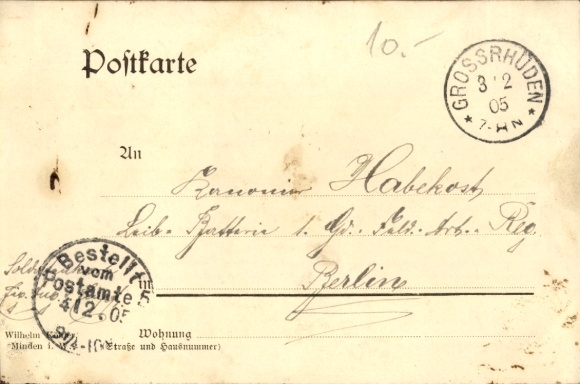 10.-
Postkarte
GROSSRHÜDEN
3 12
05
7-8 N
An
Kanonier Habekost,
Leib-Batterie 1. Gd. Feld-Art. Reg.
in Berlin
Bestellt
vom
Postamte 5
4/12.05
Wilhelm
Minden i. W.
Wohnung
(Straße und Hausnummer)